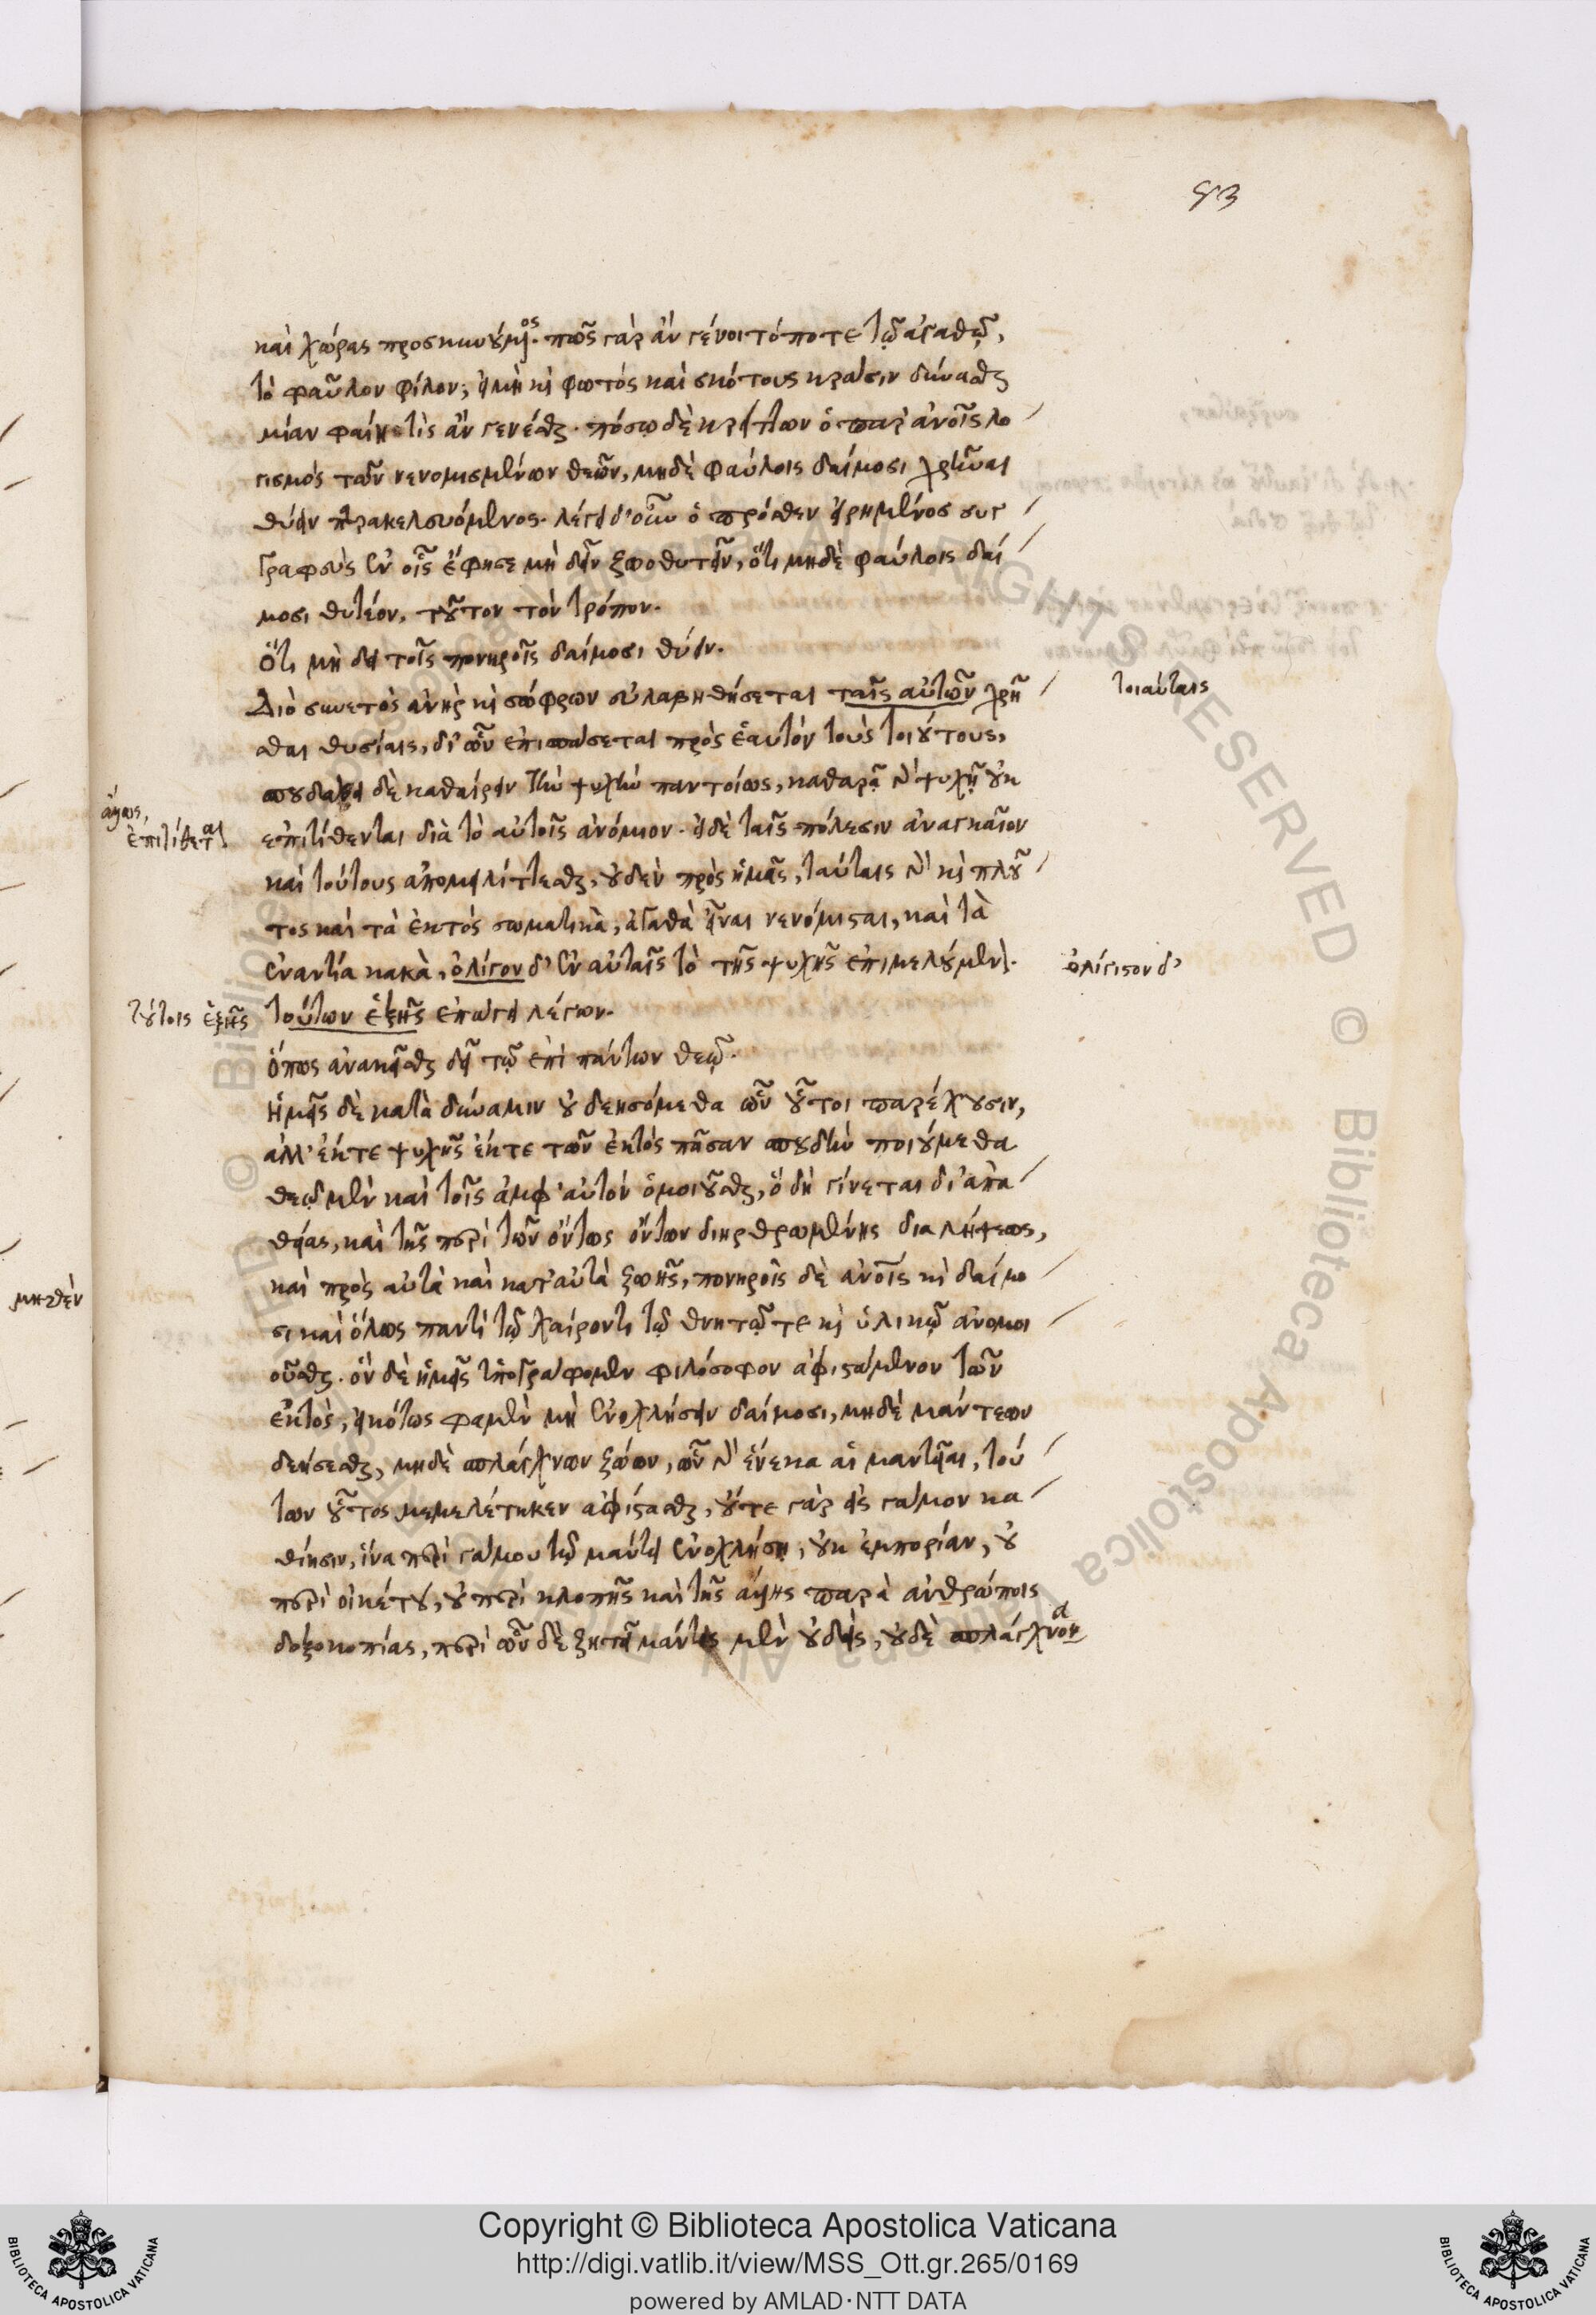 83
καὶ χώρας προσκυνούμενος. πῶς γὰρ ἂν γένοιτό ποτε τῷ ἀγαθῷ,
τὸ φαῦλον φίλον; εἰ μὴ κὶ φωτός καὶ σκότους κρᾶσιν δύνασθαι
μίαν φαίη τὶς ἂν γενέσθαι. πόσῳ δὲ κρείττων ὁ παρ' ἀνοῖς λο
γισμὸς τῶν νενομισμένων θεῶν, μηδὲ φαύλοις δαίμοσι χρῆναι
θύειν παρακελευόμενος. λέγει δ' οὖν ὁ πρόσθεν εἰρημένος συγ
γραφεὺς ἐν οἷς ἔφησε μὴ δεῖν ζωοθυτεῖν, ὅτι μηδὲ φαύλοις δαί
μοσι θυτέον, τοῦτον τὸν τρόπον.
Ὅτι μὴ δεῖ τοῖς πονηροῖς δαίμοσι θύειν.
Διὸ συνετὸς ἀνὴρ κὶ σώφρων εὐλαβηθήσεται ταῖς αὐτῶν χρῆ τοιαύταις
σθαι θυσίαις, δι' ὧν ἐπισπάσεται πρὸς ἑαυτὸν τοὺς τοιούτους,
σπουδάσει δὲ καθαίρειν τὴν ψυχὴν παντοίως, καθαρᾷ γὰρ ψυχῇ οὐκ
ἐπιτίθεται ἐπιτίθενται διὰ τὸ αὐτοῖς ἀνόμοιον. εἰ δὲ ταῖς πόλεσιν ἀναγκαῖον
καὶ τούτους ἀπομειλίττεσθαι, οὐδὲν πρὸς ἡμᾶς, ταύταις γὰρ κὶ πλοῦ
τος καὶ τὰ ἐκτός σωματικὰ, ἀγαθὰ εἶναι νενόμισται, καὶ τὰ
ἐναντία κακὰ, ὀλίγον δ' ἐν αὐταῖς τὸ τῆς ψυχῆς ἐπιμελούμενον. ὀλίγιστον δ'
τούτοις ἑξῆς τούτων ἑξῆς ἐπάγει λέγων.
Ὅπως ἀνακεῖσθαι δεῖ τῷ ἐπὶ πάντων θεῷ.
Ἡμεῖς δὲ κατὰ δύναμιν οὐ δεησόμεθα ὧν οὗτοι παρέχουσιν,
ἀλλ' ἔκ τε ψυχῆς ἔκ τε τῶν ἐκτὸς πᾶσαν σπουδὴν ποιούμεθα
θεῷ μὲν καὶ τοῖς ἀμφ' αὐτὸν ὁμοιοῦσθαι, ὃ δὴ γίνεται δι' ἀπα
θείας, καὶ τῆς περὶ τῶν ὄντως ὄντων διηρθρωμένης διαλήψεως,
καὶ πρὸς αὐτὰ καὶ κατ' αὐτὰ ζωῆς, πονηροῖς δὲ ἀνοῖς κὶ δαίμο
μηθὲν
σι καὶ ὅλως παντὶ τῷ χαίροντι τῷ θνητῷ τε κὶ ὑλικῷ ἀνομοι
οῦσθαι. ὃν δὲ ἡμεῖς ὑπογράφομεν φιλόσοφον ἀφιστάμενον τῶν
ἐκτὸς, εἰκότως φαμὲν μὴ ἐνοχλήσειν δαίμοσι, μηδὲ μάντεων
δεήσεσθαι, μηδὲ σπλάγχνων ζώων, ὧν γὰρ ἕνεκα αἱ μαντεῖαι, τού
των οὗτος μεμελέτηκεν ἀφίστασθαι, οὔτε γὰρ εἰς γάμον κα
θίησιν, ἵνα περὶ γάμου τῷ μάντει ἐνοχλήσῃ, οὐκ ἐμπορίαν, οὐ
περὶ οἰκέτου, οὐ περὶ κλοπῆς καὶ τῆς ἄλλης παρὰ ἀνθρώποις
δοξοκοπίας, περὶ ὧν δὲ ζητεῖ μάντις μὲν οὐδεὶς, οὐδὲ σπλάγχνον